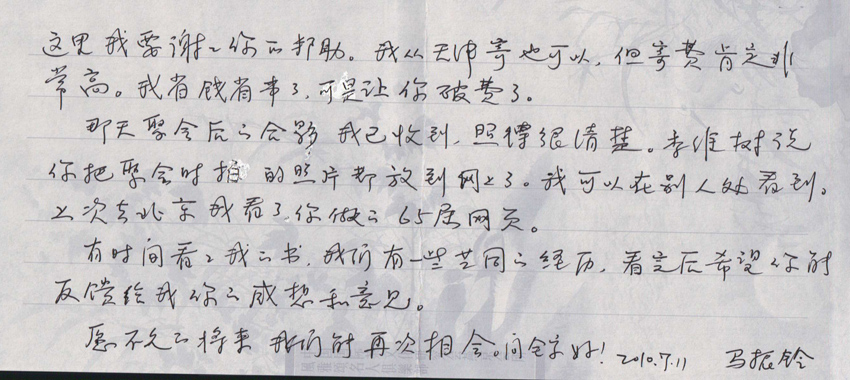 这里我要谢谢你的帮助。我从天津寄也可以,但寄费肯定非
常高。我省钱省事了,可是让你破费了。
那天聚会后的合影我已收到,照得很清楚。李维树说
你把聚会时拍的照片都放到网上了。我可以在别人处看到。
上次去北京我看了你做的65届网页。
有时间看看我的书,我们有一些共同的经历,看完后希望你能
反馈给我你的感想和意见。
愿不久的将来我们能再次相会。问全家好!2010.7.11 马振铃